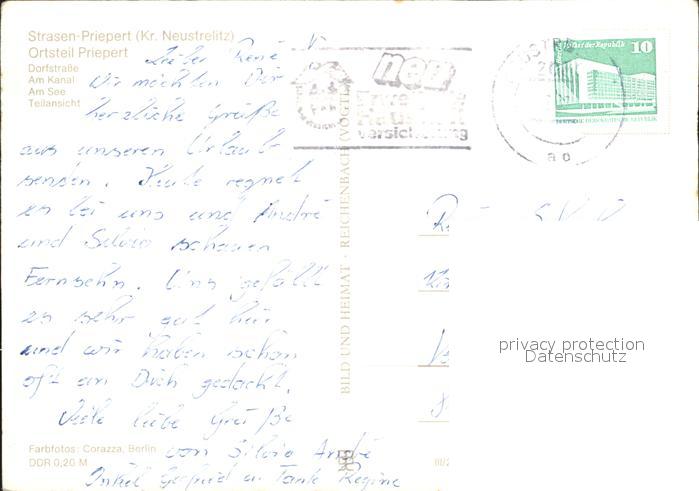 Strasen-Priepert (Kr. Neustrelitz)
Ortsteil Priepert
Dorfstraße
Am Kanal
Am See
Teilansicht
Lieber René
Wir möchten Dir
herzliche Grüße
aus unseren Urlaub
senden. Heute regnet
es bei uns und André
und Silvio schauen
Fernsehn. Uns gefällt
es sehr gut hier
und wir haben schon
oft an Dich gedacht.
Viele liebe Grüße
von Silvio André
Onkel Gerfried u. Tante Regine
Farbfotos: Corazza, Berlin
DDR 0,20 M
BILD UND HEIMAT · REICHENBACH (VOGTL)
III/2
neu
versicherung
Palast der Republik
10
DEUTSCHE DEMOKRATISCHE REPUBLIK
privacy protection
Datenschutz